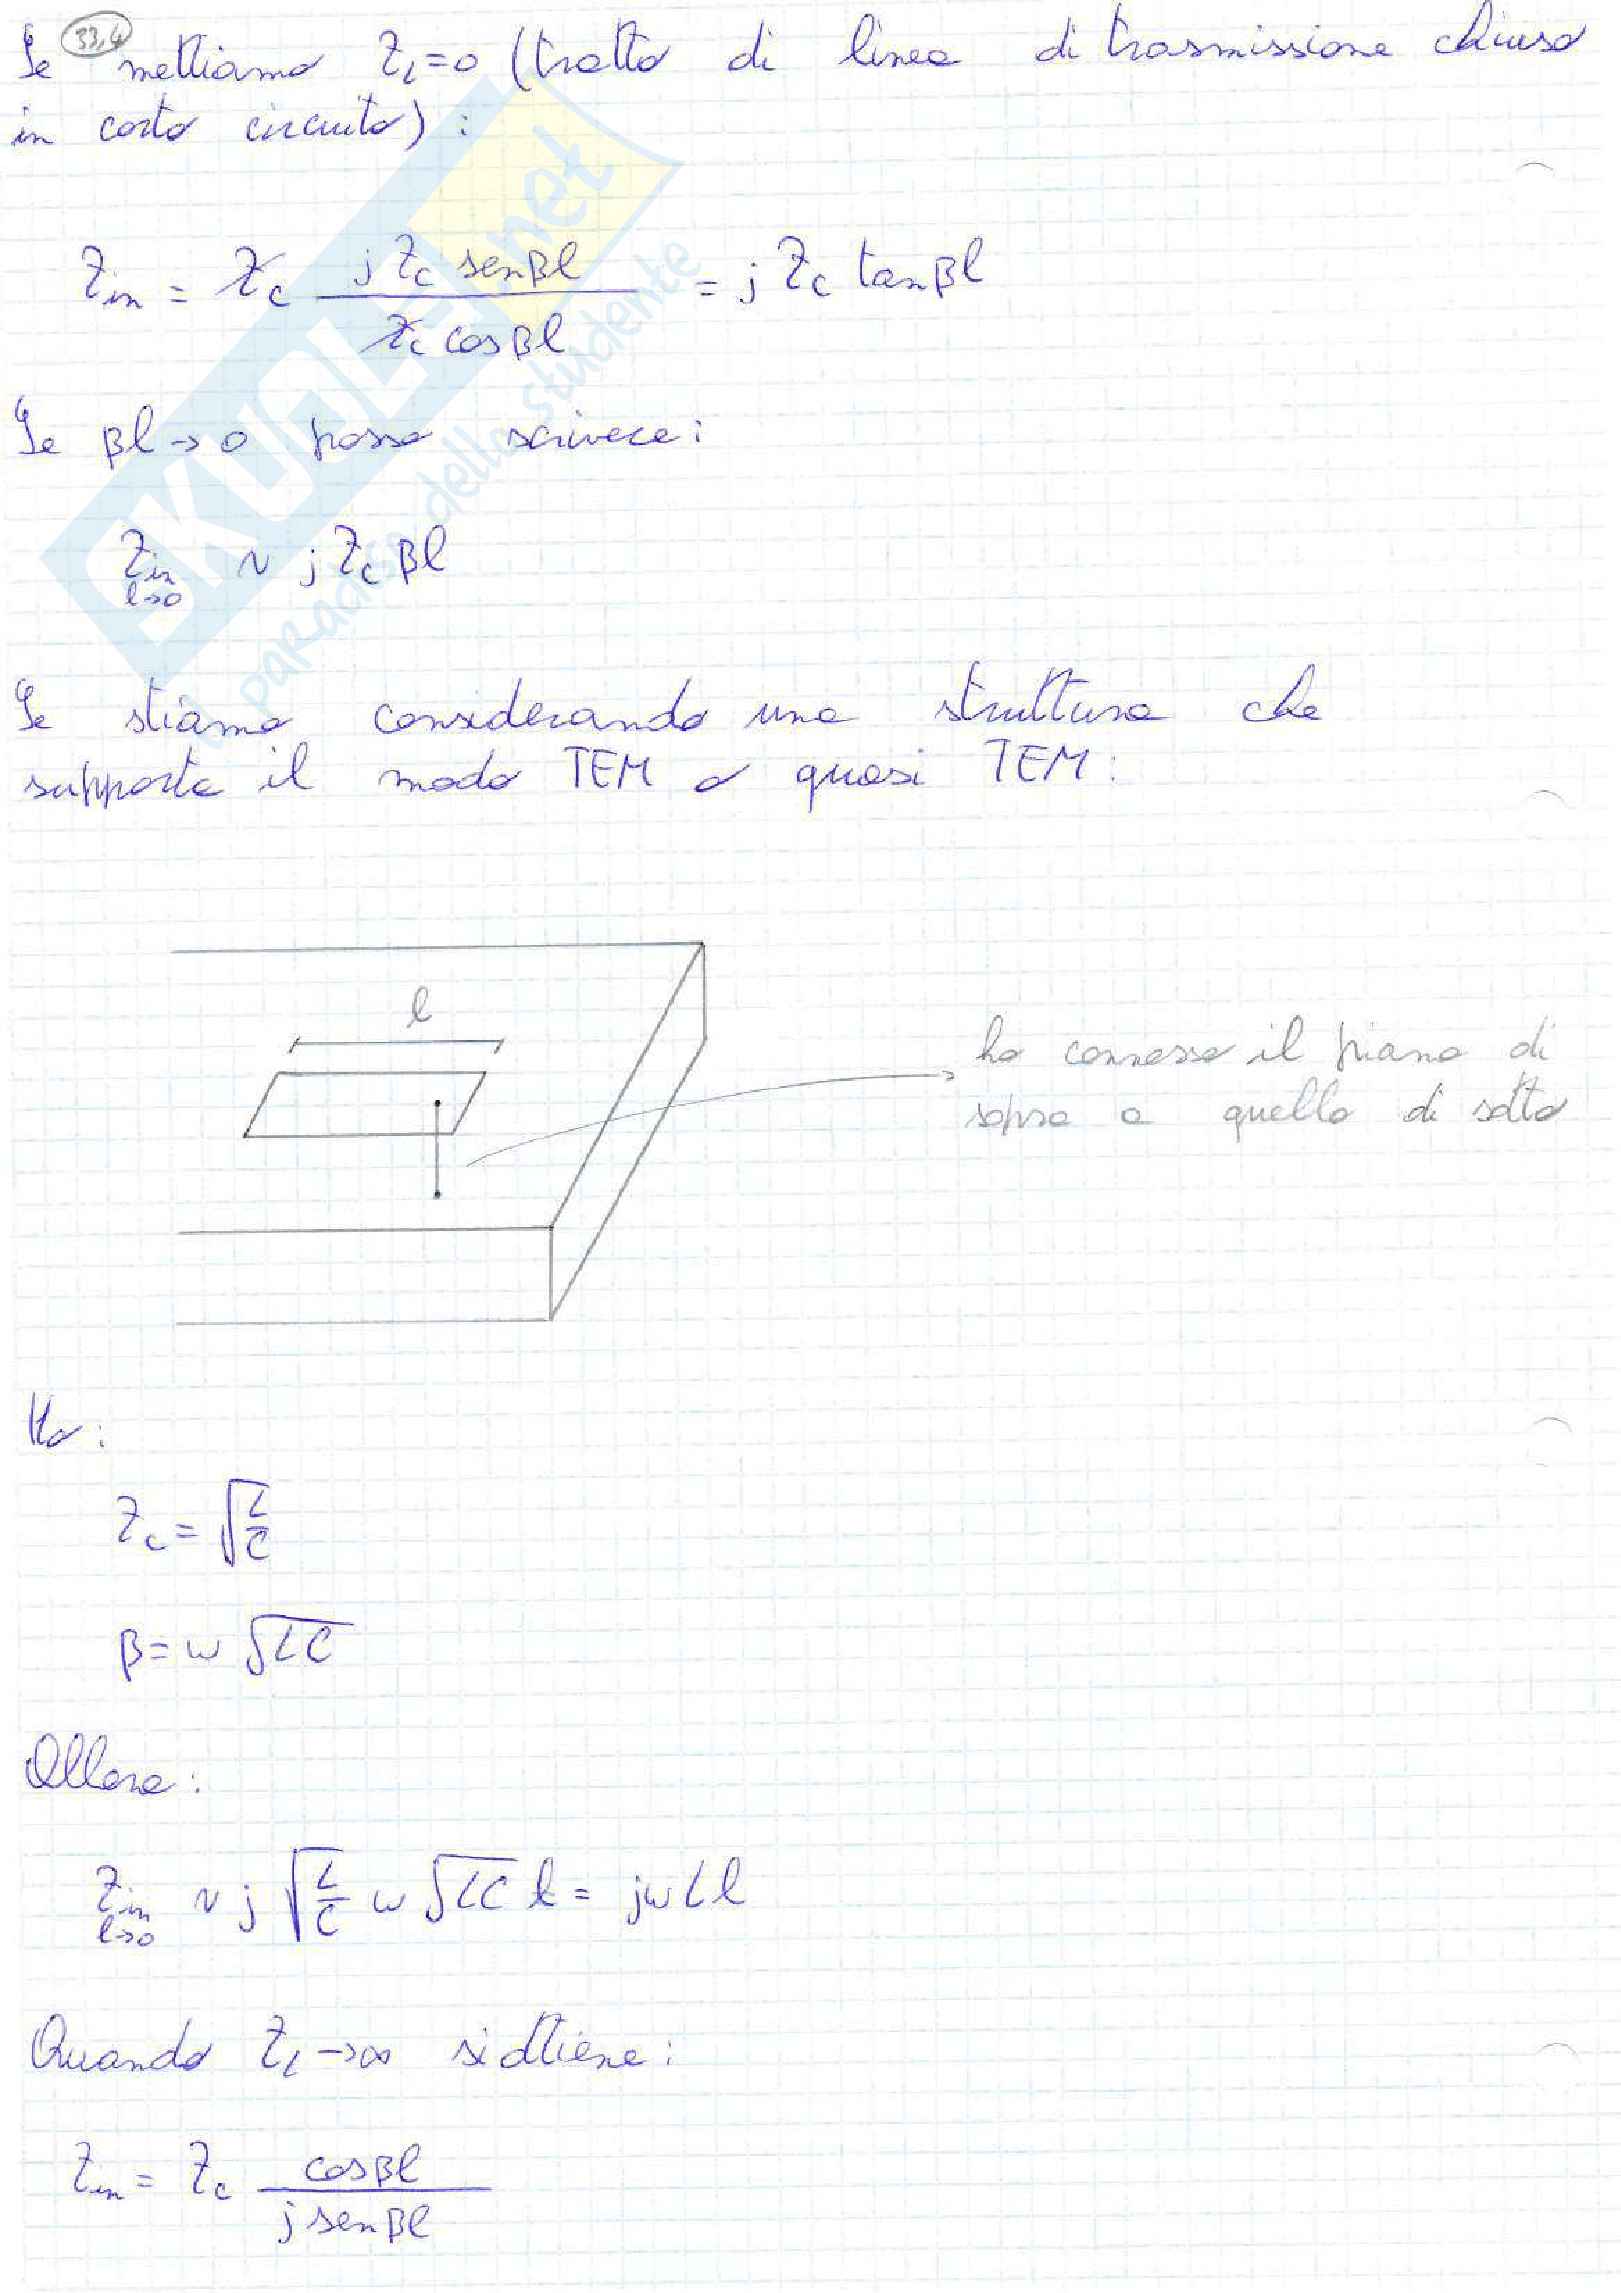 33,4
Se mettiamo Z_L=0 (tratto di linea di trasmissione chiuso
in corto circuito):
Z_in = Z_c (j Z_c senβl)/(Z_c cosβl) = j Z_c tanβl
Se βl→0 posso scrivere:
Z_in ~ j Z_c βl
l→0
Se stiamo considerando una struttura che
supporta il modo TEM o quasi TEM:
l
ho connesso il piano di
sopra a quello di sotto
Ho:
Z_c = √(L/C)
β = ω √(LC)
Allora:
Z_in ~ j √(L/C) ω √(LC) l = jωLl
l→0
Quando Z_L→∞ si ottiene:
Z_in = Z_c (cosβl)/(j senβl)
SKUOLA.net
il paradiso dello studente